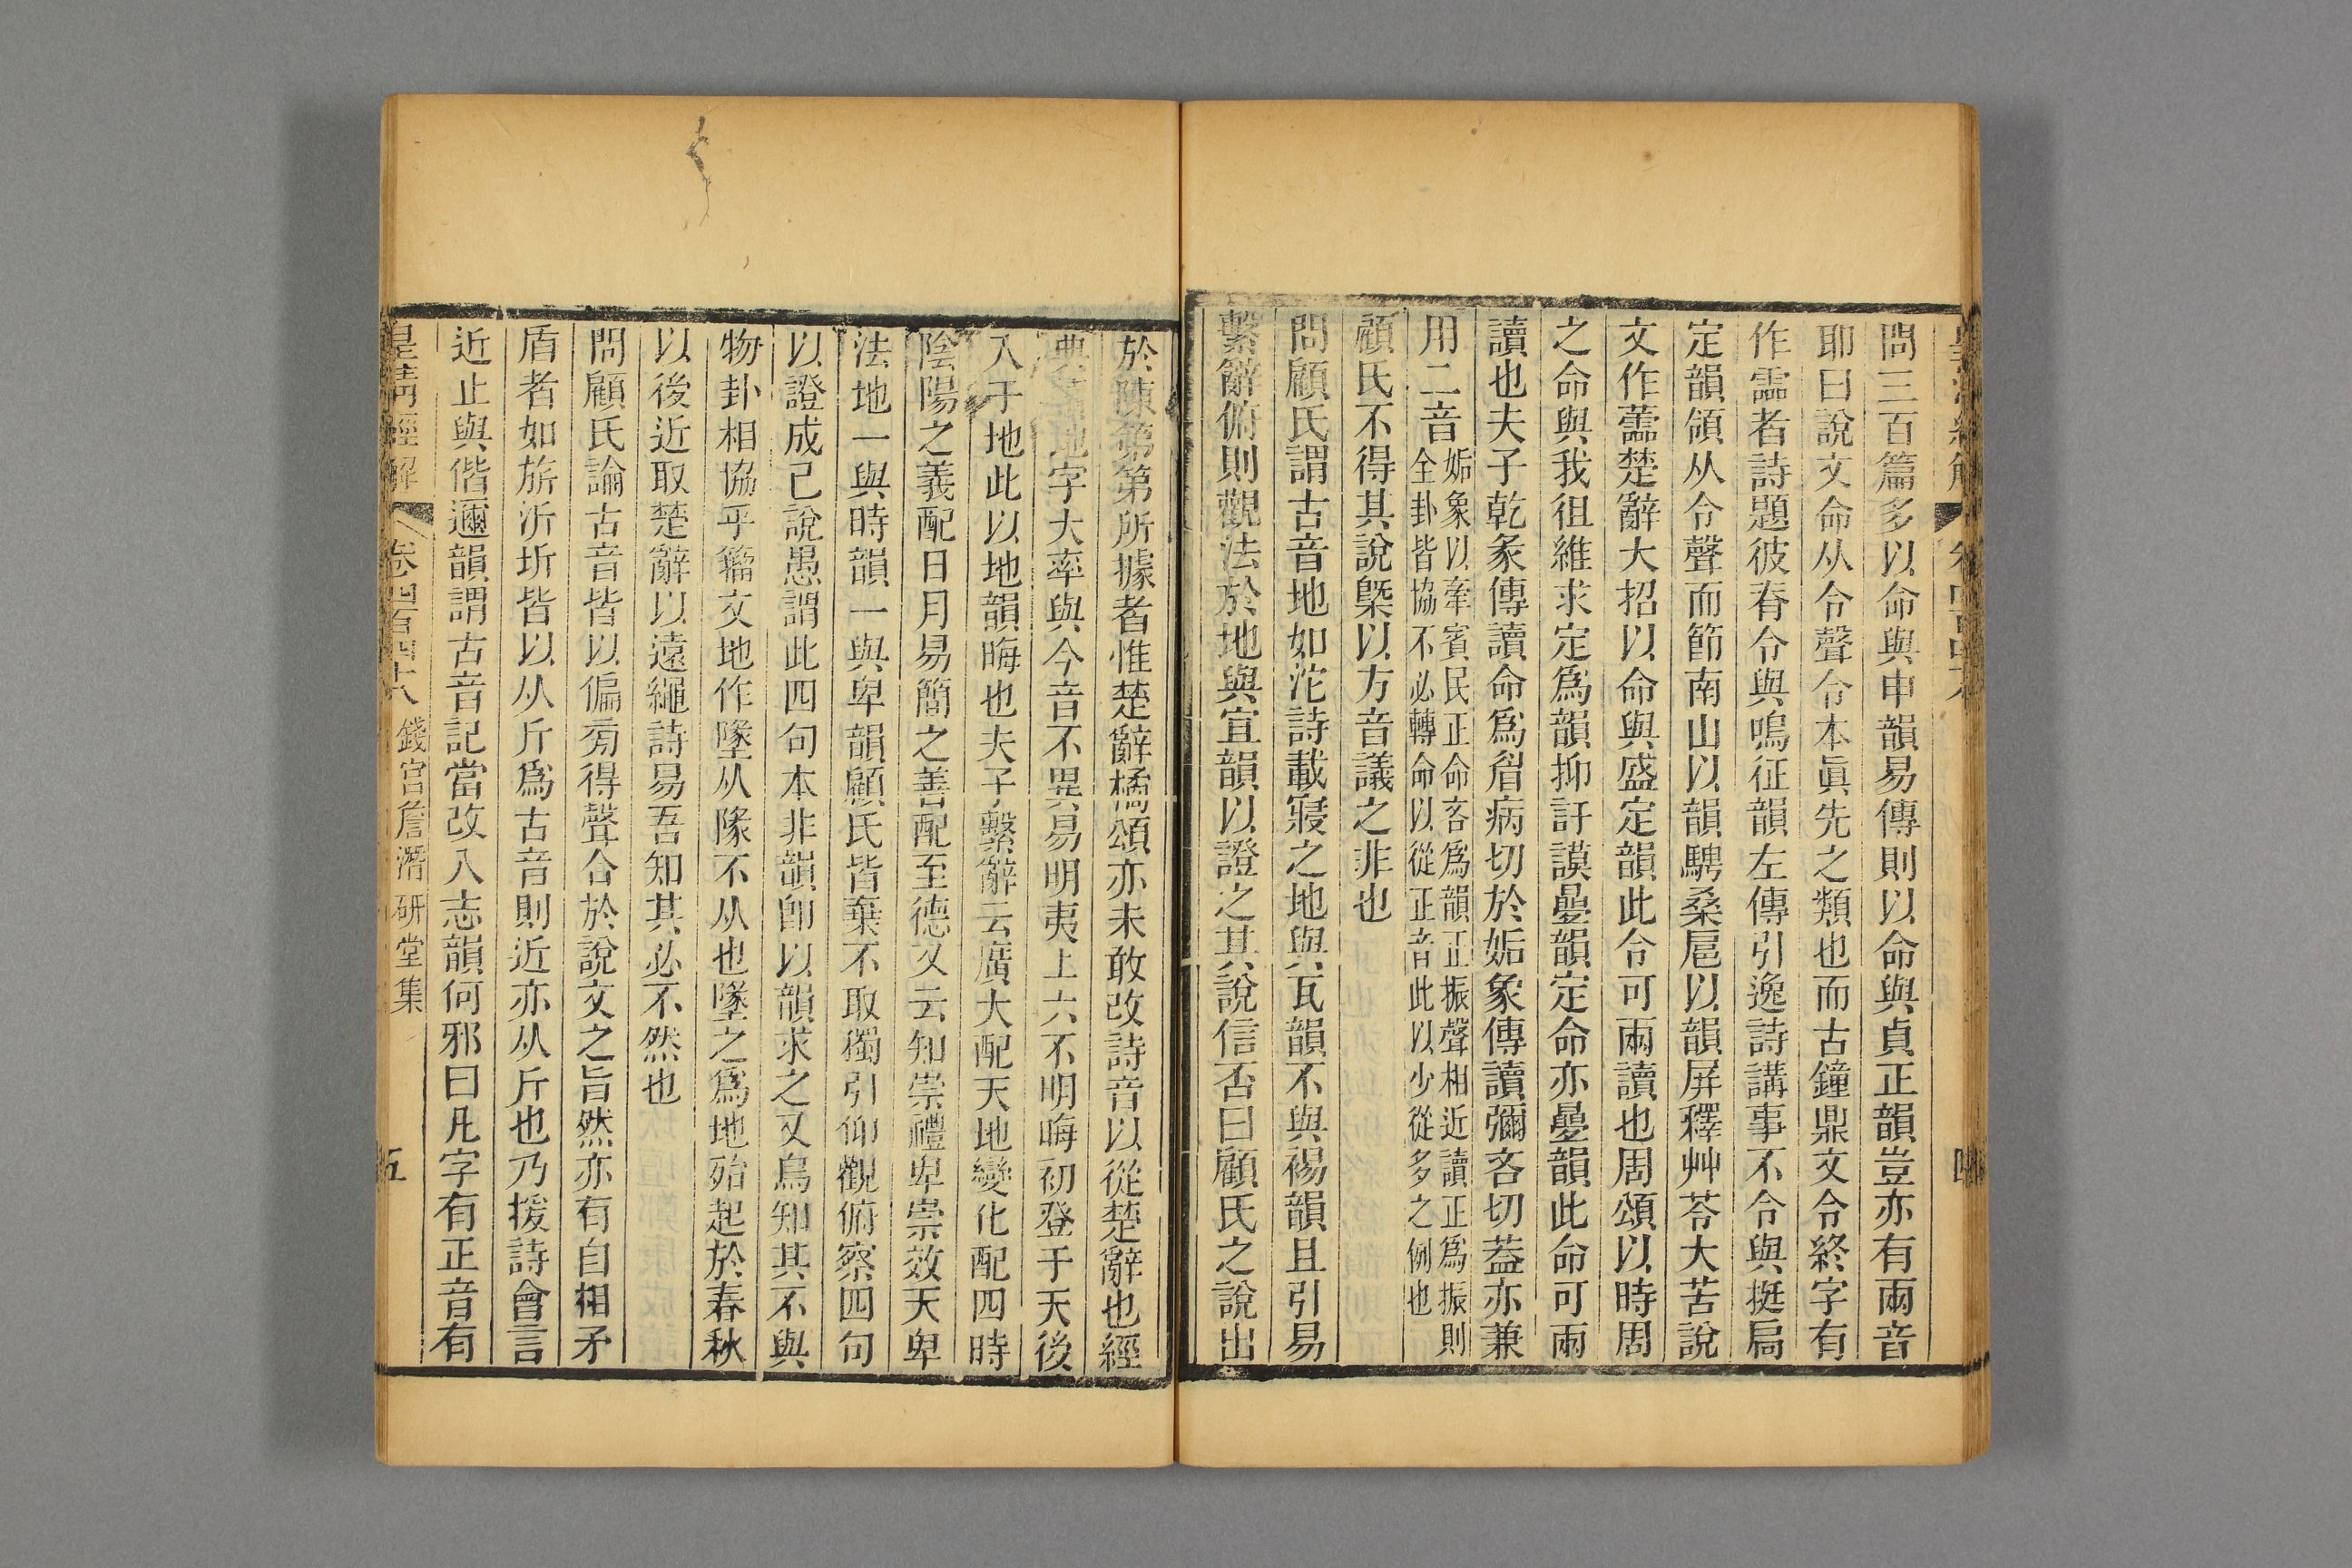 問三百篇多以命與申韻易傳則以命與貞正韻豈亦有兩音
耶曰說文命从令聲令本眞先之類也而古鐘鼎文令終字有
作霝者詩題彼脊令與鳴征韻左傳引逸詩講事不令與挺扃
定韻領从令聲而節南山以韻騁桑扈以韻屏釋艸苓大苦說
文作蘦楚辭大招以命與盛定韻此令可兩讀也周頌以時周
之命與我徂維求定爲韻抑訏謨曡韻定命亦曡韻此命可兩
讀也夫子乾彖傳讀命爲眉病切於姤象傳讀彌吝切葢亦兼
用二音姤象以牽賓民正命吝爲韻正振聲相近讀正爲振則
全卦皆協不必轉命以從正音此以少從多之例也
顧氏不得其說槩以方音議之非也
問顧氏謂古音地如沱詩載寢之地與瓦韻不與裼韻且引易
繫辭俯則觀法於地與宜韻以證之其說信否曰顧氏之說出
於陳第第所據者惟楚辭橘頌亦未敢改詩音以從楚辭也經
典地字大率與今音不異易明夷上六不明晦初登于天後
入于地此以地韻晦也夫子繫辭云廣大配天地變化配四時
陰陽之義配日月易簡之善配至德又云知崇禮卑崇效天卑
法地一與時韻一與卑韻顧氏皆棄不取獨引仰觀俯察四句
以證成己說愚謂此四句本非韻卽以韻求之又烏知其不與
物卦相協乎籀文地作墬从㒸不从也墬之爲地殆起於春秋
以後近取楚辭以遠繩詩易吾知其必不然也
問顧氏論古音皆以偏旁得聲合於說文之旨然亦有自相矛
盾者如旂沂圻皆以从斤爲古音則近亦从斤也乃援詩會言
近止與偕邇韻謂古音記當改入志韻何邪曰凡字有正音有
皇淸經解
卷四百四十八
錢宮詹潛研堂集
五